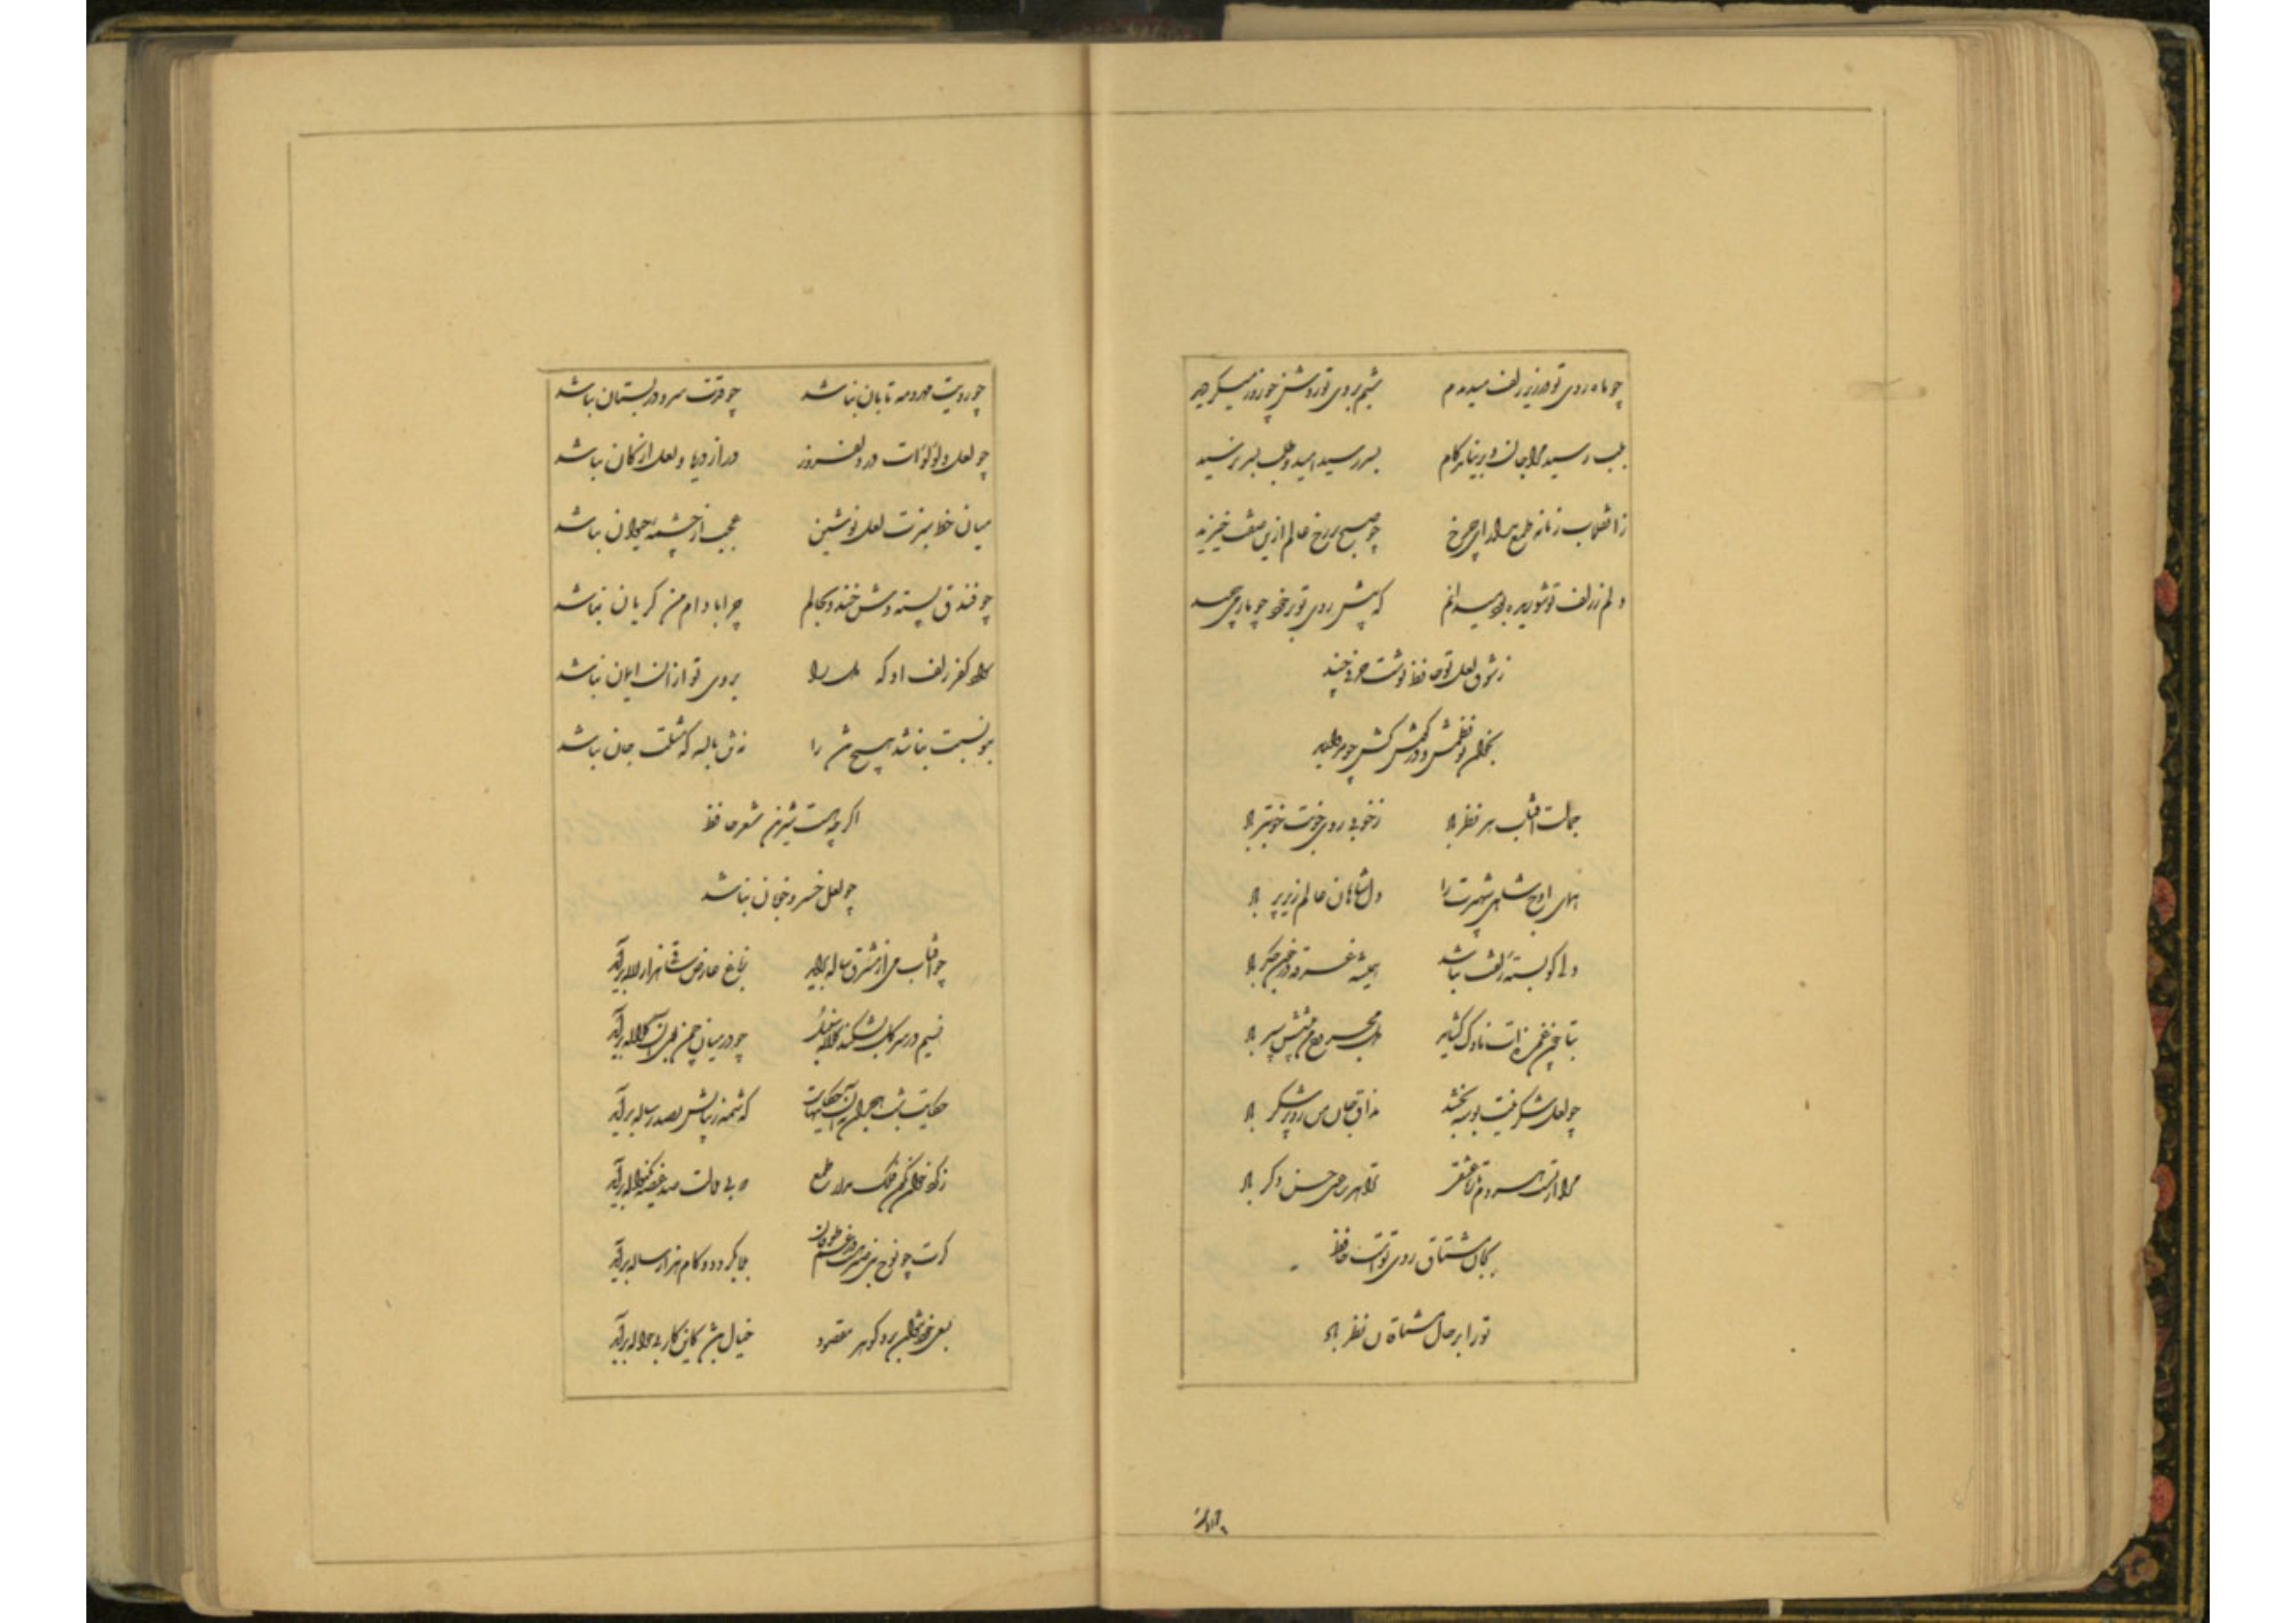 چو ماه روی تو در زیر زلف میدیدم شبم بروی تو روشن چو روز میگردید
بلب رسید مرا جان و برنیامد کام بسر رسید امید و طلب بسر نرسید
چو صبح بر رخ عالم ازین صفت خندید
دلم ز زلف تو شوریده بود میدانم که پیش روی تو بر خود چو مار می‌پیچید
ز شوق لعل تو حافظ نوشت حرفی چند
بخوان تو نظمش و در گوش کش چو مروارید
جمالت آفتاب هر نظر باد ز خوبی روی خوبت خوبتر باد
همای اوج شاهی شهپرت را دل شاهان عالم زیر پر باد
دلی کو بسته زلفت نباشد همیشه غرقه در خون جگر باد
بتا چون غمزه‌ات ناوک گشاید دل مجروح من پیشش سپر باد
چو لعل شکرینت بوسه بخشد مذاق جان من زو پر شکر باد
مرا از تست هر دم تازه عشقی ترا هر ساعتی حسن دگر باد
بجان مشتاق روی تست حافظ
تو را بر حال مشتاقان نظر باد
چو رویت
چو رویت مهر و مه تابان نباشد چو قدت سرو در بستان نباشد
چو لعل و لؤلؤات در دلفروز در از دریا و لعل از کان نباشد
میان خط سبزت لعل نوشین عجب از چشمه حیوان نباشد
چو فندق پسته‌وش خندد بحالم چرا بادام من گریان نباشد
کفر زلف او که بروی تو از آن ایمان نباشد
بتو نسبت نباشد هیچ تن را نه تن بالله که مثلت جان نباشد
اگر چه هست شیرین شعر حافظ
چو لعل خسرو خوبان نباشد
چو آفتاب می از مشرق پیاله برآید ز باغ عارض ساقی هزار لاله برآید
نسیم در سر گل بشکند کلاله سنبل چو در میان چمن بوی آن کلاله برآید
حکایت شب هجران نه آن حکایتهاست که شمه ز بیانش بصد رساله برآید
ز گرد خوان نگون فلک مدار طمع که بی ملالت صد غصه یک نواله برآید
گرت چو نوح نبی صبر هست در غم طوفان بلا بگردد و کام هزار ساله برآید
بسعی خود نتوان برد گوهر مقصود خیال باشد کاین کار بی حواله برآید